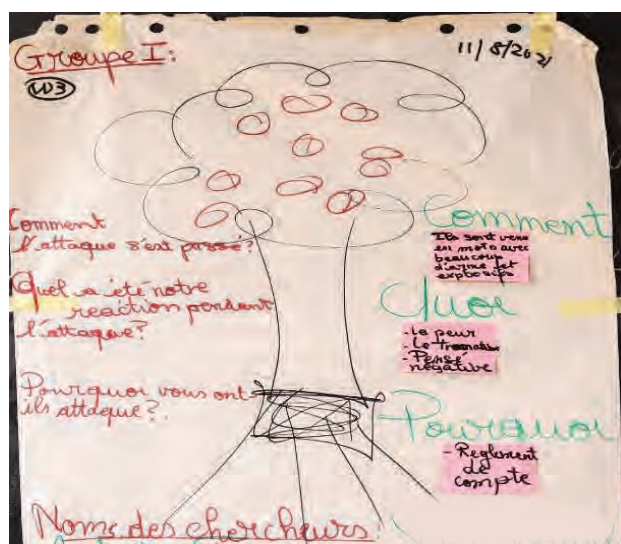 Groupe I:
W3
11/8/2021
Comment
l'attaque s'est passé?
Quel a été notre
reaction pensant
l'attaque?
Pourquoi vous ont
ils attaque?.
Comment
Ils sont venu
en moto avec
beaucoup
d'arme et
explosifs
Quoi
- la peur
- Le
- Pensé
négative
Pourquoi
- Reglement
de
compte
Noms des chercheurs: